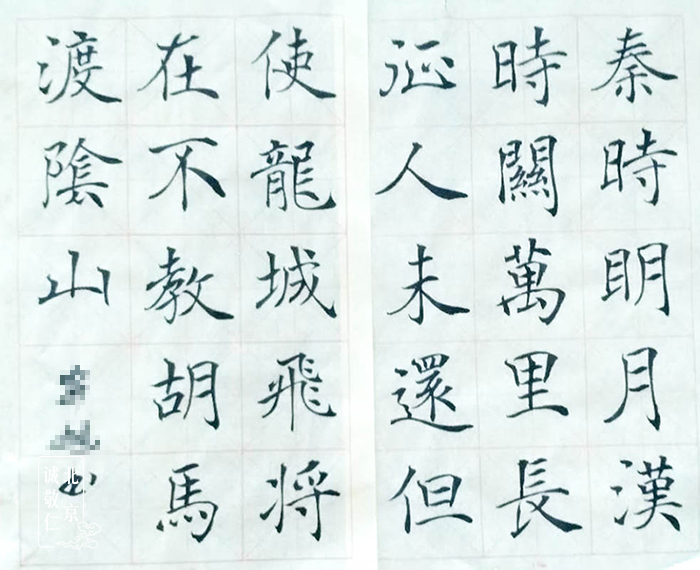 秦時明月漢
時關萬里長
征人未還但
使龍城飛将
在不教胡馬
渡陰山
书
北京
诚敬仁